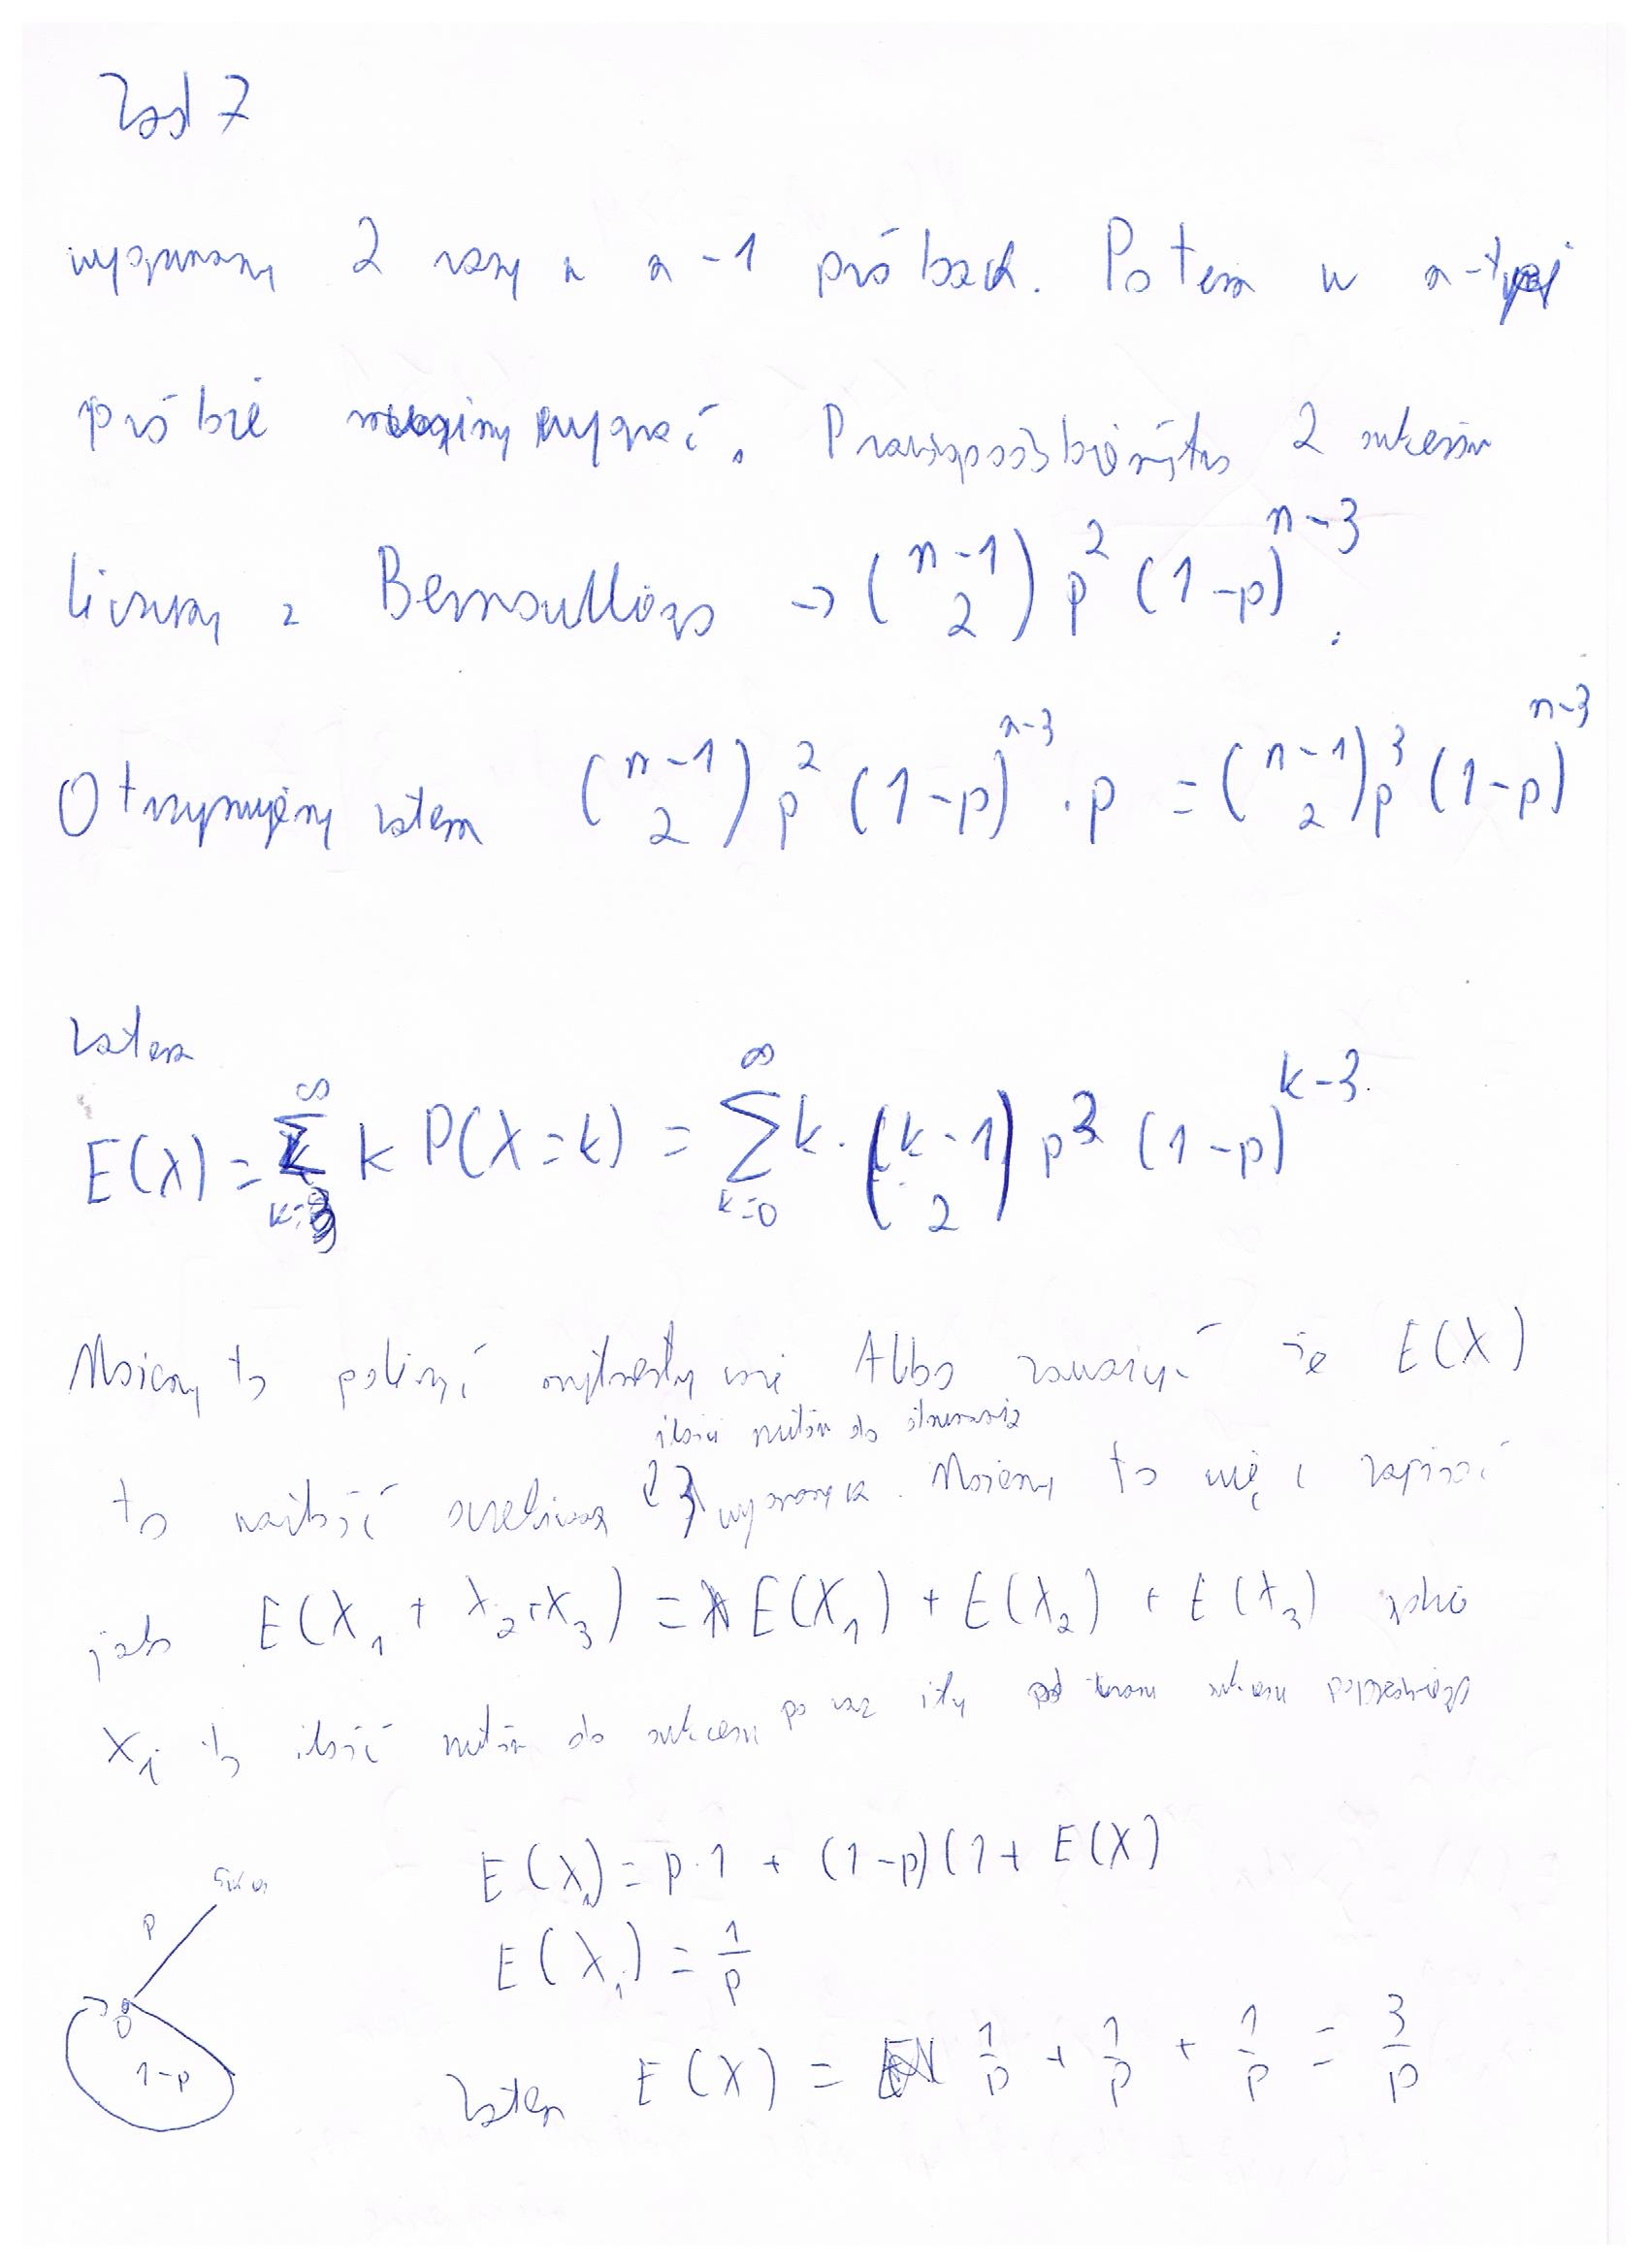 Zad 7
wygramy 2 razy w n-1 próbach. Potem w n-tej
próbie musimy wygrać. Prawdopodobieństwo 2 sukcesów
liczymy z Bernoulliego → (n-1 2) p^2 (1-p)^{n-3}.
Otrzymujemy zatem (n-1 2) p^2 (1-p)^{n-3} · p = (n-1 2) p^3 (1-p)^{n-3}
Zatem
E(X) = ∑_{k=3}^{∞} k P(X=k) = ∑_{k=0}^{∞} k · (k-1 2) p^3 (1-p)^{k-3}
Możemy to policzyć Albo zauważyć że E(X)
ilości rzutów do otrzymania
to wartość oczekiwana 3 wygranych. Możemy to więc zapisać
jako E(X_1 + X_2 + X_3) = E(X_1) + E(X_2) + E(X_3) gdzie
X_i to ilość rzutów do sukcesu po raz ity sukcesu poprzedniego
E(X_1) = p·1 + (1-p)(1+ E(X)
sukces
p
E(X_1) = 1/p
0
1-p
Zatem E(X) = 1/p + 1/p + 1/p = 3/p